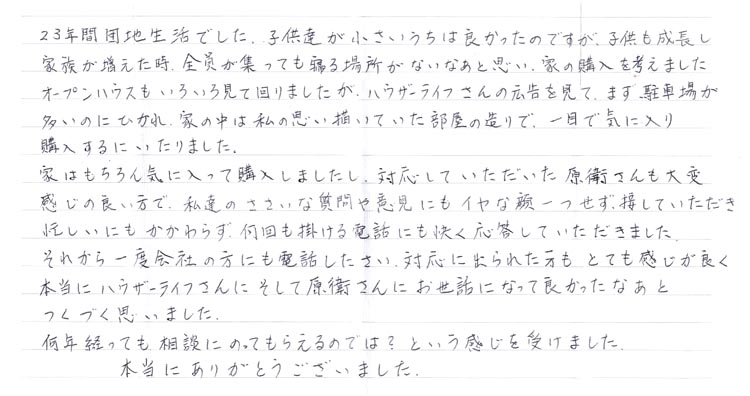 23年間団地生活でした。子供達が小さいうちは良かったのですが、子供も成長し
家族が増えた時、全員が集っても寝る場所がないなあと思い、家の購入を考えました
オープンハウスもいろいろ見て回りましたが、ハウザーライフさんの広告を見て、まず駐車場が
多いのにひかれ、家の中は私の思い描いていた部屋の造りで、一目で気に入り
購入するにいたりました。
家はもちろん気に入って購入しましたし、対応していただいた原衛さんも大変
感じの良い方で、私達のささいな質問や意見にもイヤな顔一つせず、接していただき
忙しいにもかかわらず、何回も掛ける電話にも快く応答していただきました。
それから一度会社の方にも電話したさい、対応に出られた方もとても感じが良く
本当にハウザーライフさんにそして原衛さんにお世話になって良かったなあと
つくづく思いました。
何年経っても相談にのってもらえるのでは？という感じを受けました。
本当にありがとうございました。